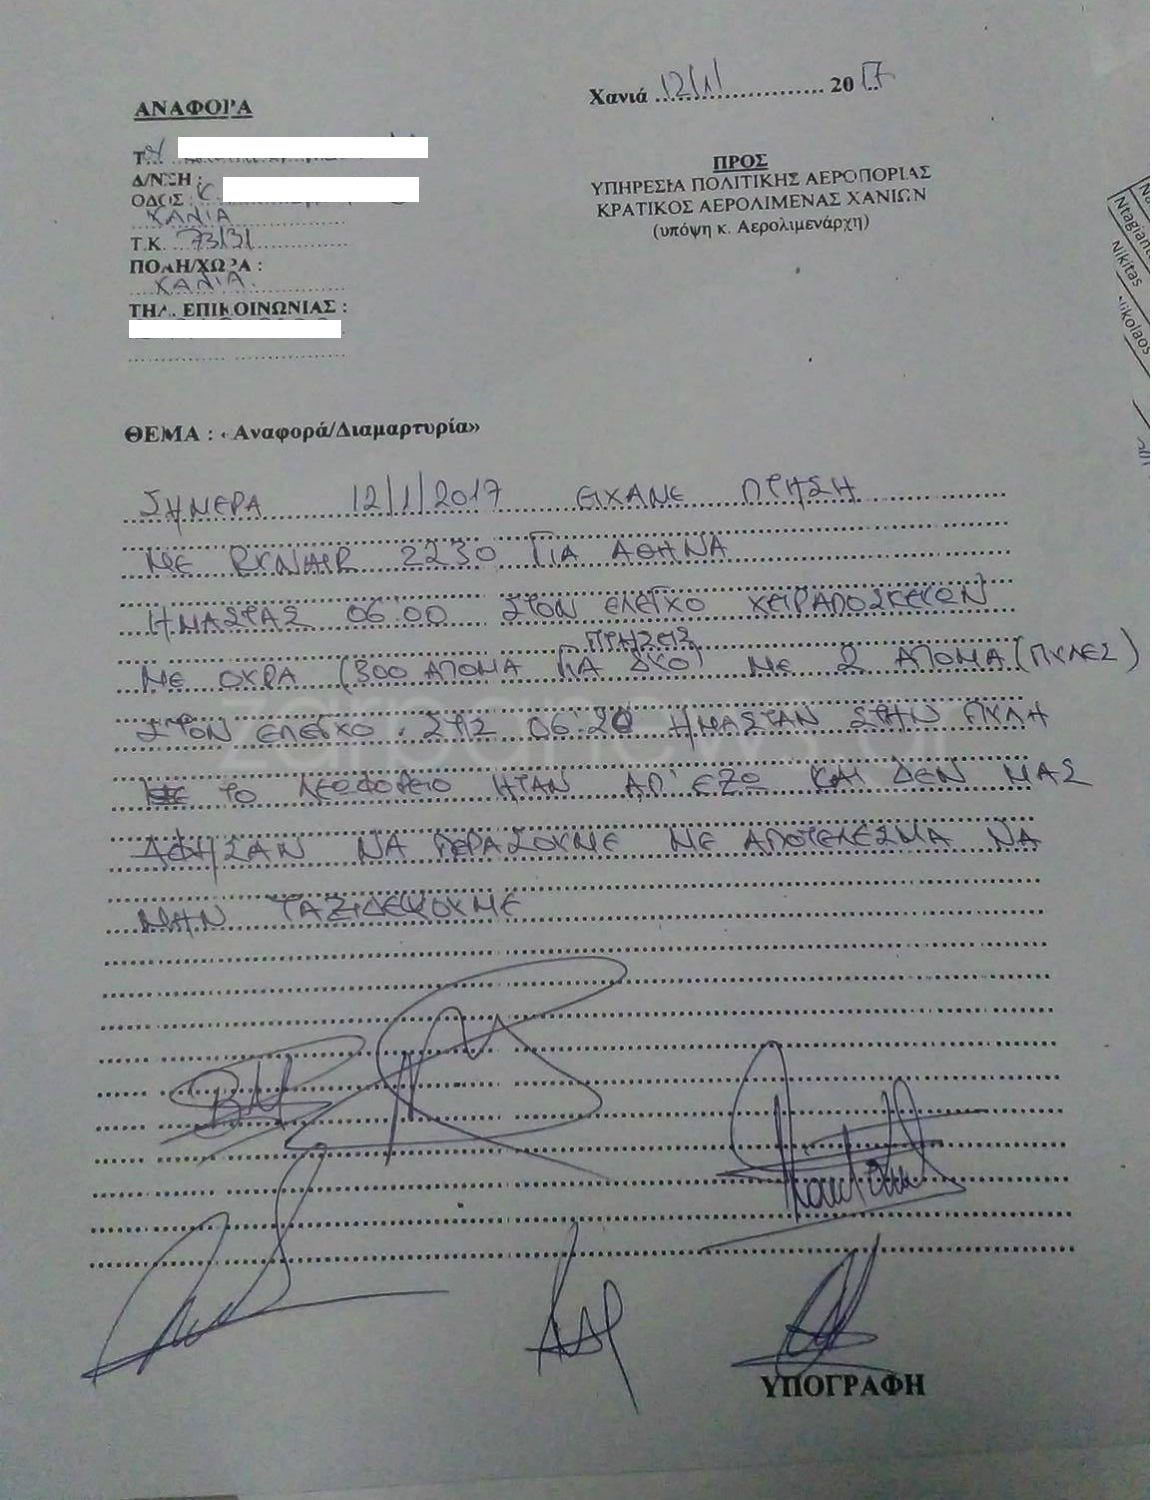 ΑΝΑΦΟΡΑ
Χανιά 12/1/ 2017
Τ
Δ/ΝΣΗ :
ΟΔΟΣ : Κ
ΧΑΝΙΑ
Τ.Κ. 73131
ΠΟΛΗ/ΧΩΡΑ :
ΧΑΝΙΑ
ΤΗΛ. ΕΠΙΚΟΙΝΩΝΙΑΣ :
ΠΡΟΣ
ΥΠΗΡΕΣΙΑ ΠΟΛΙΤΙΚΗΣ ΑΕΡΟΠΟΡΙΑΣ
ΚΡΑΤΙΚΟΣ ΑΕΡΟΛΙΜΕΝΑΣ ΧΑΝΙΩΝ
(υπόψη κ. Αερολιμενάρχη)
Ntagian
Nikitas
Nikolaos
ΘΕΜΑ : «Αναφορά/Διαμαρτυρία»
ΣΗΜΕΡΑ 12/1/2017 ΕΙΧΑΜΕ ΠΤΗΣΗ
ΜΕ RYNAIR 2230 ΓΙΑ ΑΘΗΝΑ
ΗΜΑΣΤΑΣ 06:00 ΣΤΟΝ ΕΛΕΓΧΟ ΧΕΙΡΑΠΟΣΚΕΥΩΝ
ΠΤΗΣΕΙΣ
ΜΕ ΟΥΡΑ (300 ΑΤΟΜΑ ΓΙΑ ΔΥΟ) ΜΕ 2 ΑΤΟΜΑ (ΠΥΛΕΣ)
ΣΤΟΝ ΕΛΕΓΧΟ. ΣΤΙΣ 06:20 ΗΜΑΣΤΑΝ ΣΤΗΝ ΠΥΛΗ
ΤΟ ΛΕΩΦΟΡΕΙΟ ΗΤΑΝ ΑΠ' ΕΞΩ ΚΑΙ ΔΕΝ ΜΑΣ
ΑΦΗΣΑΝ ΝΑ ΠΕΡΑΣΟΥΜΕ ΜΕ ΑΠΟΤΕΛΕΣΜΑ ΝΑ
ΜΗΝ ΤΑΞΙΔΕΨΟΥΜΕ
ΥΠΟΓΡΑΦΗ